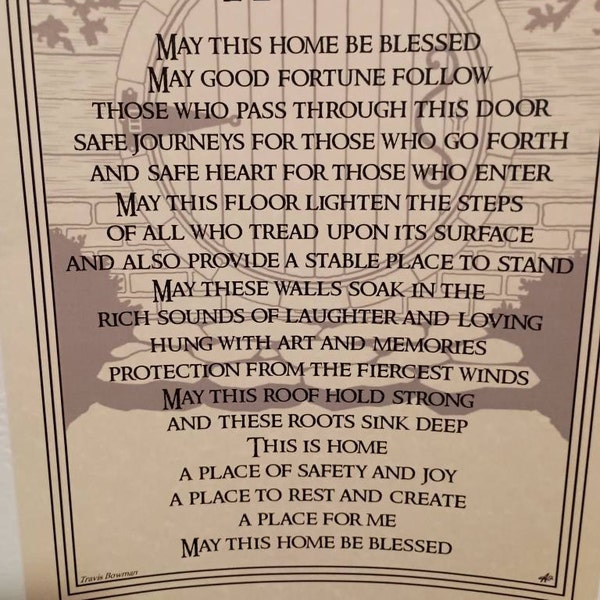 MAY THIS HOME BE BLESSED
MAY GOOD FORTUNE FOLLOW
THOSE WHO PASS THROUGH THIS DOOR
SAFE JOURNEYS FOR THOSE WHO GO FORTH
AND SAFE HEART FOR THOSE WHO ENTER
MAY THIS FLOOR LIGHTEN THE STEPS
OF ALL WHO TREAD UPON ITS SURFACE
AND ALSO PROVIDE A STABLE PLACE TO STAND
MAY THESE WALLS SOAK IN THE
RICH SOUNDS OF LAUGHTER AND LOVING
HUNG WITH ART AND MEMORIES
PROTECTION FROM THE FIERCEST WINDS
MAY THIS ROOF HOLD STRONG
AND THESE ROOTS SINK DEEP
THIS IS HOME
A PLACE OF SAFETY AND JOY
A PLACE TO REST AND CREATE
A PLACE FOR ME
MAY THIS HOME BE BLESSED
Travis Bowman